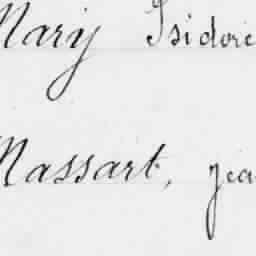 Mary Isidore
Massart, jea